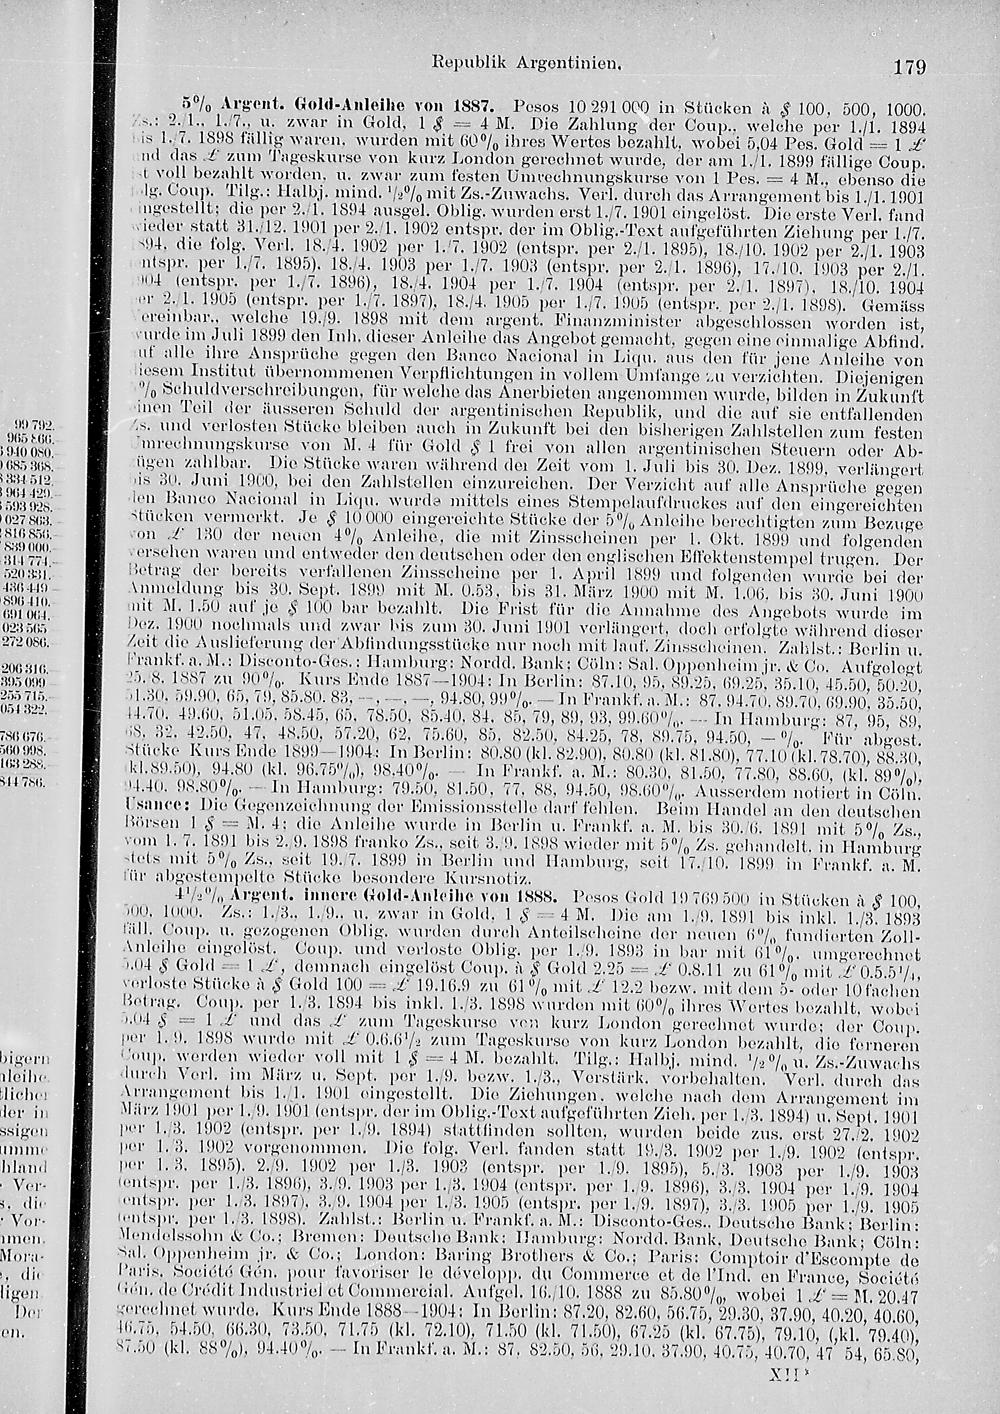 Republik Argentinien.
179
5% Argent. Gold-Anleihe von 1887. Pesos 10 291 000 in Stücken à $ 100, 500, 1000.
Zs.: 2./1., 1./7., u. zwar in Gold, 1 $ = 4 M. Die Zahlung der Coup., welche per 1./1. 1894
bis 1./7. 1898 fällig waren, wurden mit 60% ihres Wertes bezahlt, wobei 5,04 Pes. Gold = 1 £
und das £ zum Tageskurse von kurz London gerechnet wurde, der am 1./1. 1899 fällige Coup.
st voll bezahlt worden, u. zwar zum festen Umrechnungskurse von 1 Pes. = 4 M., ebenso die
lg. Coup. Tilg.: Halbj. mind. ½% mit Zs.-Zuwachs. Verl. durch das Arrangement bis 1./1. 1901
ingestellt; die per 2./1. 1894 ausgel. Oblig. wurden erst 1./7. 1901 eingelöst. Die erste Verl. fand
wieder statt 31./12. 1901 per 2./1. 1902 entspr. der im Oblig.-Text aufgeführten Ziehung per 1./7.
894, die folg. Verl. 18./4. 1902 per 1./7. 1902 (entspr. per 2./1. 1895), 18./10. 1902 per 2./1. 1903
ntspr. per 1./7. 1895), 18./4. 1903 per 1./7. 1903 (entspr. per 2./1. 1896), 17./10. 1903 per 2./1.
904 (entspr. per 1./7. 1896), 18./4. 1904 per 1./7. 1904 (entspr. per 2./1. 1897), 18./10. 1904
er 2./1. 1905 (entspr. per 1./7. 1897), 18./4. 1905 per 1./7. 1905 (entspr. per 2./1. 1898). Gemäss
ereinbar., welche 19./9. 1898 mit dem argent. Finanzminister abgeschlossen worden ist,
wurde im Juli 1899 den Inh. dieser Anleihe das Angebot gemacht, gegen eine einmalige Abfind.
uf alle ihre Ansprüche gegen den Banco Nacional in Liqu. aus den für jene Anleihe von
iesem Institut übernommenen Verpflichtungen in vollem Umfange zu verzichten. Diejenigen
% Schuldverschreibungen, für welche das Anerbieten angenommen wurde, bilden in Zukunft
inen Teil der äusseren Schuld der argentinischen Republik, und die auf sie entfallenden
Zs. und verlosten Stücke bleiben auch in Zukunft bei den bisherigen Zahlstellen zum festen
Umrechnungskurse von M. 4 für Gold $ 1 frei von allen argentinischen Steuern oder Ab-
ügen zahlbar. Die Stücke waren während der Zeit vom 1. Juli bis 30. Dez. 1899, verlängert
bis 30. Juni 1900, bei den Zahlstellen einzureichen. Der Verzicht auf alle Ansprüche gegen
den Banco Nacional in Liqu. wurde mittels eines Stempelaufdruckes auf den eingereichten
Stücken vermerkt. Je $ 10 000 eingereichte Stücke der 5% Anleihe berechtigten zum Bezuge
von £ 130 der neuen 4% Anleihe, die mit Zinsscheinen per 1. Okt. 1899 und folgenden
versehen waren und entweder den deutschen oder den englischen Effektenstempel trugen. Der
Betrag der bereits verfallenen Zinsscheine per 1. April 1899 und folgenden wurde bei der
Anmeldung bis 30. Sept. 1899 mit M. 0.53, bis 31. März 1900 mit M. 1.06, bis 30. Juni 1900
mit M. 1.50 auf je $ 100 bar bezahlt. Die Frist für die Annahme des Angebots wurde im
Dez. 1900 nochmals und zwar bis zum 30. Juni 1901 verlängert, doch erfolgte während dieser
Zeit die Auslieferung der Abfindungsstücke nur noch mit lauf. Zinsscheinen. Zahlst.: Berlin u.
Frankf. a. M.: Disconto-Ges.; Hamburg: Nordd. Bank; Cöln: Sal. Oppenheim jr. & Co. Aufgelegt
25./8. 1887 zu 90%. Kurs Ende 1887—1904: In Berlin: 87.10, 95, 89.25, 69.25, 35.10, 45.50, 50.20,
51.30, 59.90, 65, 79, 85.80, 83, —, —, —, 94.80, 99%. — In Frankf. a. M.: 87, 94.70, 89.70, 69.90, 35.50,
44.70, 49.60, 51.05, 58.45, 65, 78.50, 85.40, 84, 85, 79, 89, 93, 99.60%. — In Hamburg: 87, 95, 89,
68, 32, 42.50, 47, 48.50, 57.20, 62, 75.60, 85, 82.50, 84.25, 78, 89.75, 94.50, — %. Für abgest.
Stücke Kurs Ende 1899—1904: In Berlin: 80.80 (kl. 82.90), 80.80 (kl. 81.80), 77.10 (kl. 78.70), 88.30,
kl. 89.50), 94.80 (kl. 96.75%), 98.40%. — In Frankf. a. M.: 80.30, 81.50, 77.80, 88.60, (kl. 89%),
94.40, 98.80%. — In Hamburg: 79.50, 81.50, 77, 88, 94.50, 98.60%. Ausserdem notiert in Cöln.
Usance: Die Gegenzeichnung der Emissionsstelle darf fehlen. Beim Handel an den deutschen
Börsen 1 $ = M. 4; die Anleihe wurde in Berlin u. Frankf. a. M. bis 30./6. 1891 mit 5% Zs.,
vom 1./7. 1891 bis 2./9. 1898 franko Zs., seit 3./9. 1898 wieder mit 5% Zs. gehandelt, in Hamburg
stets mit 5% Zs., seit 19./7. 1899 in Berlin und Hamburg, seit 17./10. 1899 in Frankf. a. M.
für abgestempelte Stücke besondere Kursnotiz.
4½% Argent. innere Gold-Anleihe von 1888. Pesos Gold 19 769 500 in Stücken à $ 100,
500, 1000. Zs.: 1./3., 1./9., u. zwar in Gold, 1 $ = 4 M. Die am 1./9. 1891 bis inkl. 1./3. 1893
fäll. Coup. u. gezogenen Oblig. wurden durch Anteilscheine der neuen 6% fundierten Zoll-
Anleihe eingelöst. Coup. und verloste Oblig. per 1./9. 1893 in bar mit 61%, umgerechnet
5.04 $ Gold = 1 £, demnach eingelöst Coup. à $ Gold 2.25 = £ 0.8.11 zu 61% mit £ 0.5.5¼,
verloste Stücke à $ Gold 100 = £ 19.16.9 zu 61% mit £ 12.2 bezw. mit dem 5- oder 10fachen
Betrag. Coup. per 1./3. 1894 bis inkl. 1./3. 1898 wurden mit 60% ihres Wertes bezahlt, wobei
5.04 $ = 1 £ und das £ zum Tageskurse von kurz London gerechnet wurde; der Coup.
per 1./9. 1898 wurde mit £ 0.6.6½ zum Tageskurse von kurz London bezahlt, die ferneren
Coup. werden wieder voll mit 1 $ = 4 M. bezahlt. Tilg.: Halbj. mind. ½% u. Zs.-Zuwachs
durch Verl. im März u. Sept. per 1./9. bezw. 1./3., Verstärk. vorbehalten. Verl. durch das
Arrangement bis 1./1. 1901 eingestellt. Die Ziehungen, welche nach dem Arrangement im
März 1901 per 1./9. 1901 (entspr. der im Oblig.-Text aufgeführten Zieh. per 1./3. 1894) u. Sept. 1901
per 1./3. 1902 (entspr. per 1./9. 1894) stattfinden sollten, wurden beide zus. erst 27./2. 1902
per 1./3. 1902 vorgenommen. Die folg. Verl. fanden statt 19./3. 1902 per 1./9. 1902 (entspr.
per 1./3. 1895), 2./9. 1902 per 1./3. 1903 (entspr. per 1./9. 1895), 5./3. 1903 per 1./9. 1903
(entspr. per 1./3. 1896), 3./9. 1903 per 1./3. 1904 (entspr. per 1./9. 1896), 3./3. 1904 per 1./9. 1904
(entspr. per 1./3. 1897), 3./9. 1904 per 1./3. 1905 (entspr. per 1./9. 1897), 3./3. 1905 per 1./9. 1905
(entspr. per 1./3. 1898). Zahlst.: Berlin u. Frankf. a. M.: Disconto-Ges., Deutsche Bank; Berlin:
Mendelssohn & Co.; Bremen: Deutsche Bank; Hamburg: Nordd. Bank, Deutsche Bank; Cöln:
Sal. Oppenheim jr. & Co.; London: Baring Brothers & Co.; Paris: Comptoir d'Escompte de
Paris, Société Gén. pour favoriser le développ. du Commerce et de l'Ind. en France, Société
Gén. de Crédit Industriel et Commercial. Aufgel. 16./10. 1888 zu 85.80%, wobei 1 £ = M. 20.47
gerechnet wurde. Kurs Ende 1888—1904: In Berlin: 87.20, 82.60, 56.75, 29.30, 37.90, 40.20, 40.60,
46.75, 54.50, 66.30, 73.50, 71.75 (kl. 72.10), 71.50 (kl. 71.50), 67.25 (kl. 67.75), 79.10, (kl. 79.40),
87.50 (kl. 88%), 94.40%. — In Frankf. a. M.: 87, 82.50, 56, 29.10, 37.90, 40.75, 40.70, 47 54, 65.80,
XII*